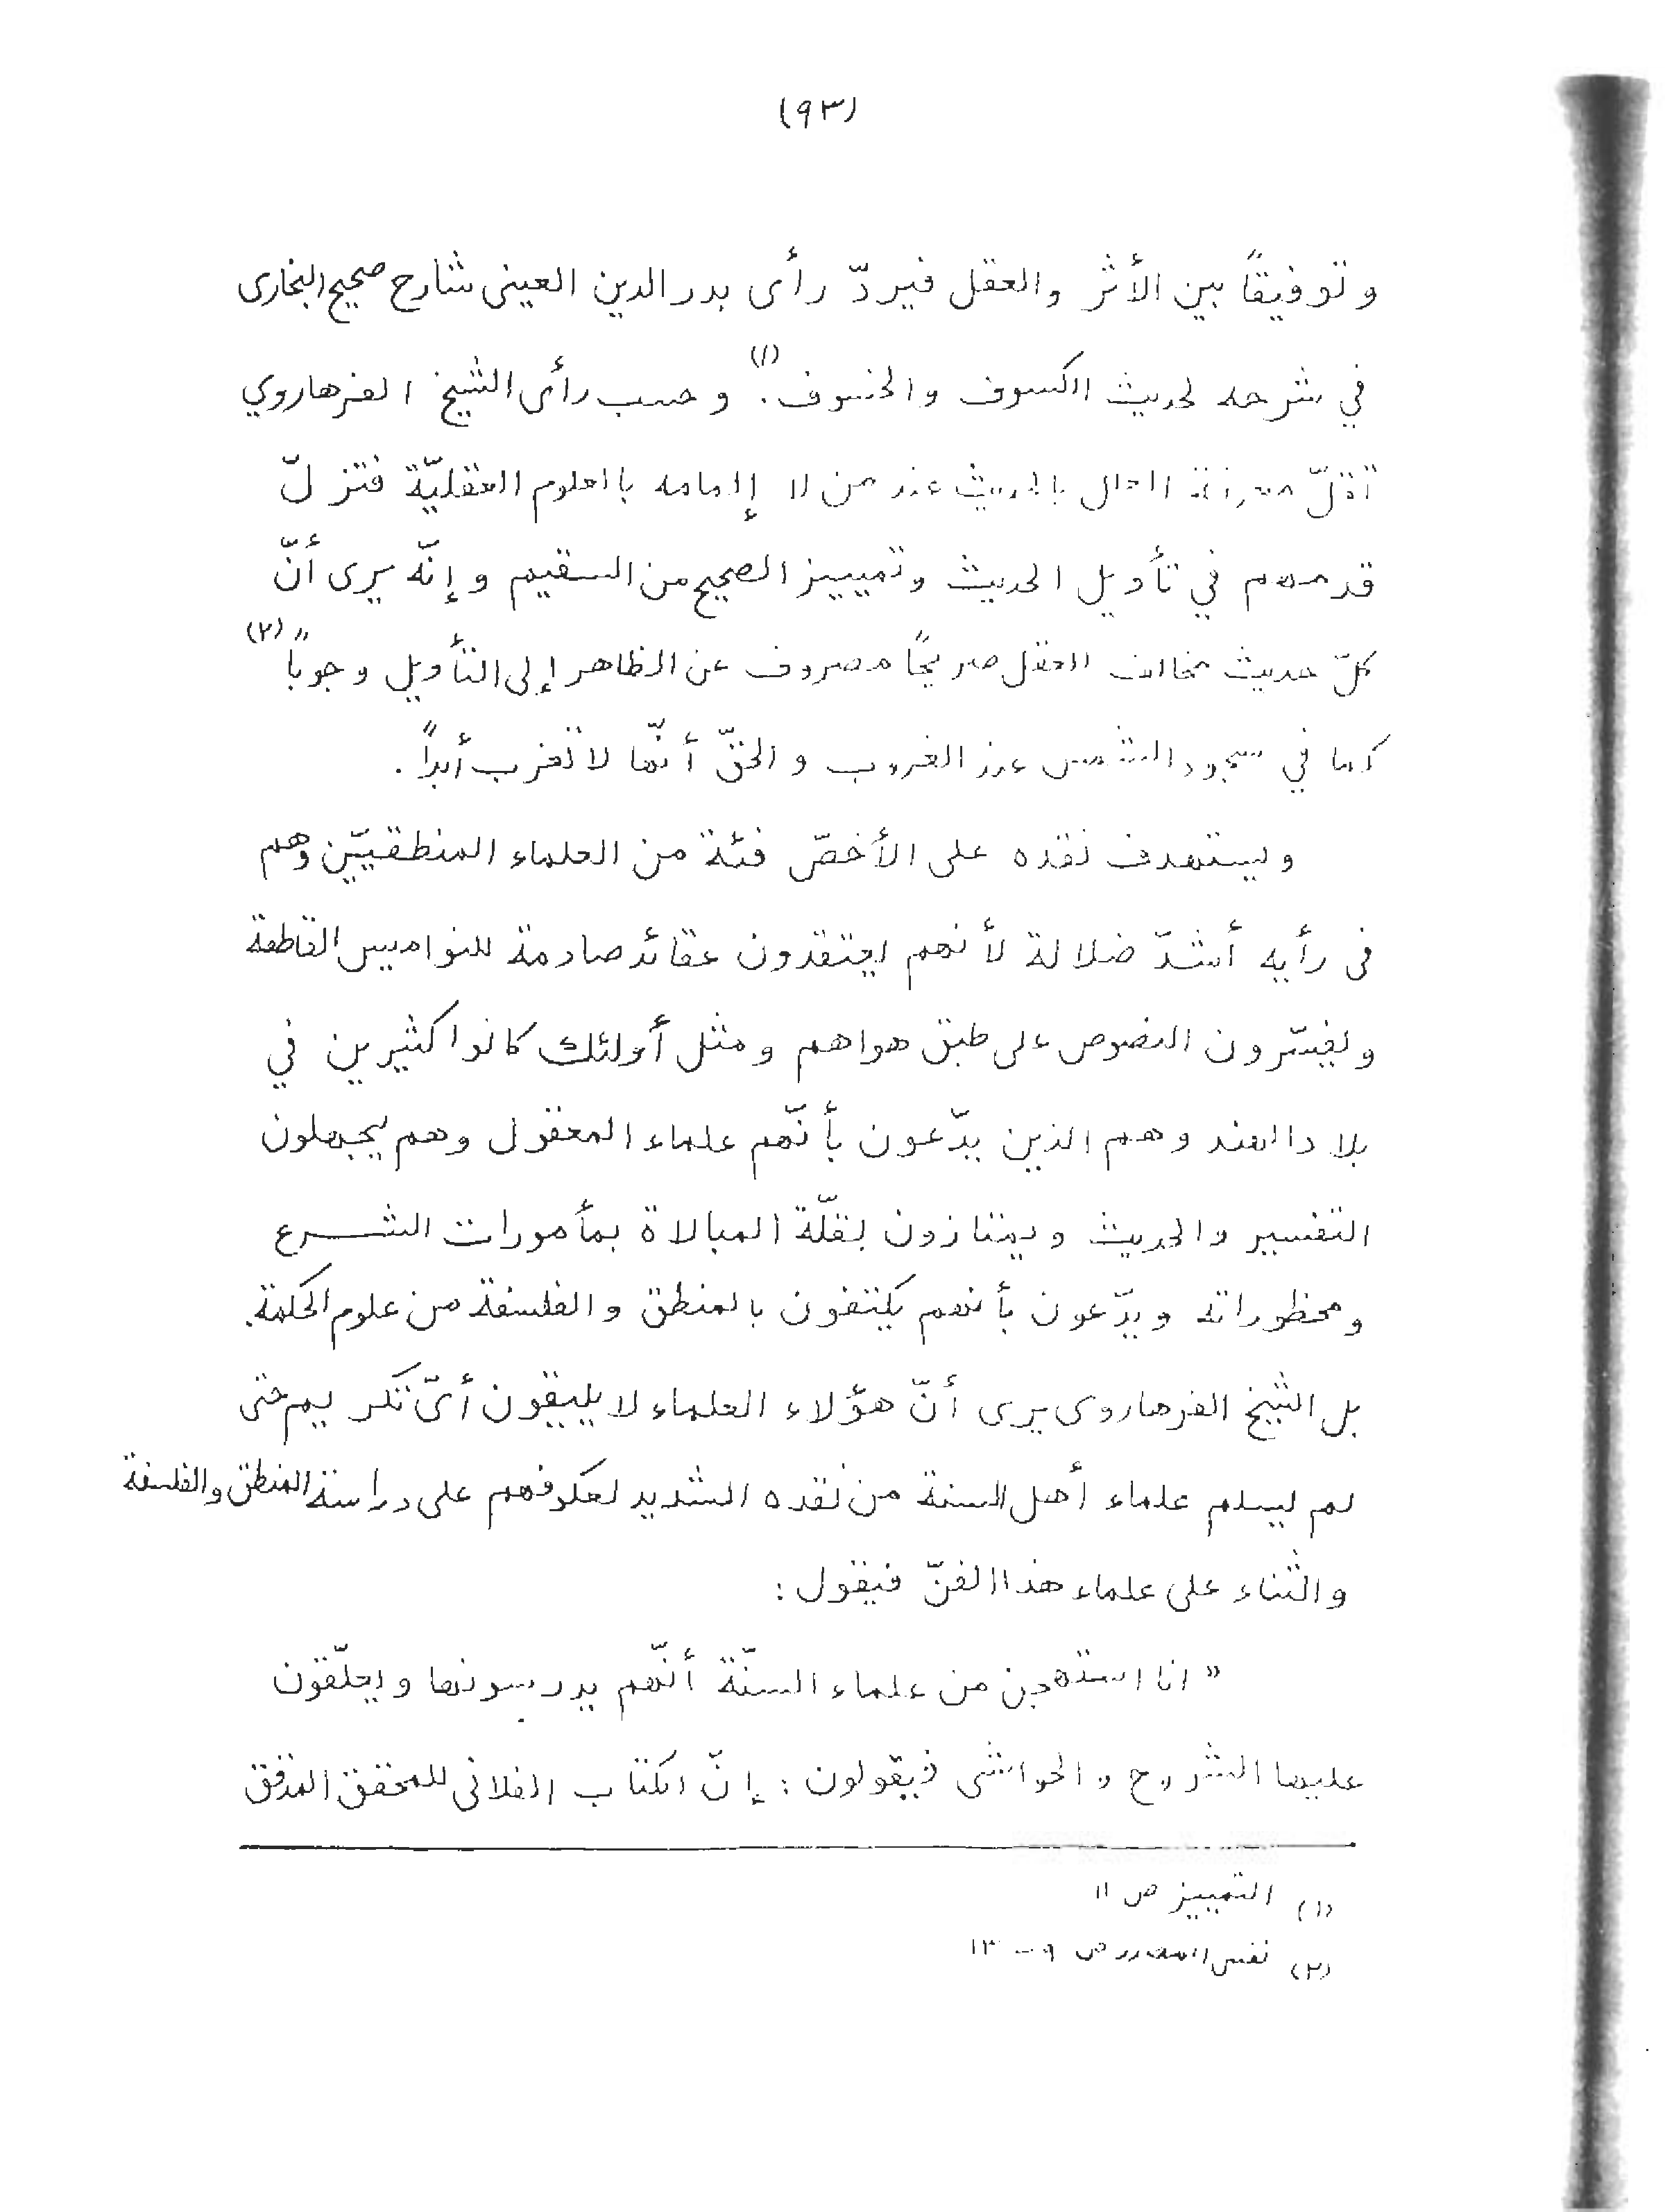 (٩٣)
وتوفيقاً بين الأثر والعقل فيردّ رأى بدر الدين العينى شارح صحيح البخارى
في شرحه لحديث الكسوف والخسوف.(١) وحسب رأى الشيخ الفرهاروي
تقلّ معرفة الحال بالحديث عند من لا إلمامه بالعلوم العقليّة فتزلّ
قدمهم في تأويل الحديث وتمييز الصحيح من السقيم وإنّه يرى أنّ
كلّ حديث مخالف العقل صريحاً مصروف عن الظاهر إلى التأويل وجوباً"(٢)
كما في سجود الشمس عند الغروب والحقّ أنّها لا تغرب أبداً.
ويستهدف نقده على الأخصّ فئة من العلماء المنطقيّين وهم
فى رأيه أشدّ ضلالة لأنهم يعتقدون عقائد صادمة للنواميس القاطعة
ويفسّرون النصوص على طبق هواهم ومثل أولئك كانوا كثيرين في
بلاد الهند وهم الذين يدّعون بأنّهم علماء المعقول وهم يجهلون
التفسير والحديث ويمتازون بقلّة المبالاة بمأمورات الشرع
ومحظوراته ويدّعون بأنهم يكتفون بالمنطق والفلسفة من علوم الحكمة.
بل الشيخ الفرهاروى يرى أنّ هؤلاء العلماء لا يليقون أىّ تكريم حتى
لم يسلم علماء أهل السنة من نقده الشديد لعكوفهم على دراسة المنطق والفلسفة
والثناء على علماء هذا الفنّ فيقول:
"انا استهجن من علماء السنّة أنّهم يدرسونها ويعلّقون
عليها الشروح والحواشى فيقولون: إنّ الكتاب الفلانى للمحقق المدقق
(١) التمييز ص ١١
(٢) نفس المصدر ص ٩ - ١٣